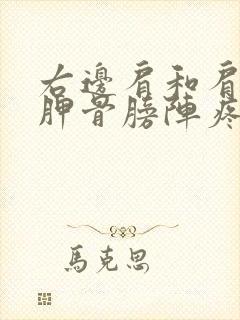 右邊肩和肩
胛骨膀陣疼
馬克思